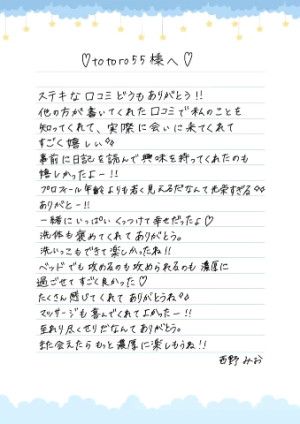 ♡totoro55様へ♡
ステキな口コミどうもありがとう!!
他の方が書いてくれた口コミで私のことを
知ってくれて、実際に会いに来てくれて
すごく嬉しい♪♪
事前に日記を読んで興味を持ってくれたのも
嬉しかったよー!!
プロフィール年齢よりも若く見えるだなんて光栄すぎる♪♪
ありがとー!!
一緒にいっぱいくっつけて幸せだったよ♡
洗体も褒めてくれてありがとう。
洗いっこもできて楽しかったね!!
ベッドでも攻めるのも攻められるのも濃厚に
過ごせてすごく良かった♡
たくさん感じてくれてありがとうね♪
マッサージも喜んでくれてよかったー!!
至れり尽くせりだなんてありがとう。
また会えたらもっと濃厚に楽しもうね!!
西野みお